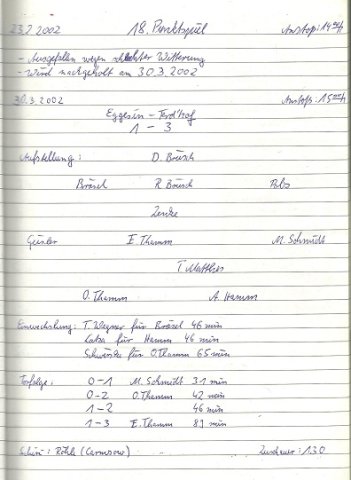 23.2.2002 18. Punktspiel Anstoß: 14.00 h
- Ausgefallen wegen schlechter Witterung
- Wird nachgeholt am 30.3.2002
30.3.2002 Anstoß: 15.00 h
Eggesin - Ferd'hof
1 - 3
Aufstellung: D. Brüsch
Bräsel R. Brüsch Pabs
Zenke
Gusler E. Thamm M. Schmidt
T. Matthes
O. Thamm A. Hamm
Einwechslung: T. Wagner für Bräsel 46 min
für Hamm 46 min
für O. Thamm 65 min
Torfolge: 0-1 M. Schmidt 31 min
0-2 O. Thamm 42 min
1-2 46 min
1-3 E. Thamm 89 min
Schiri: Röhle Zuschauer: 130